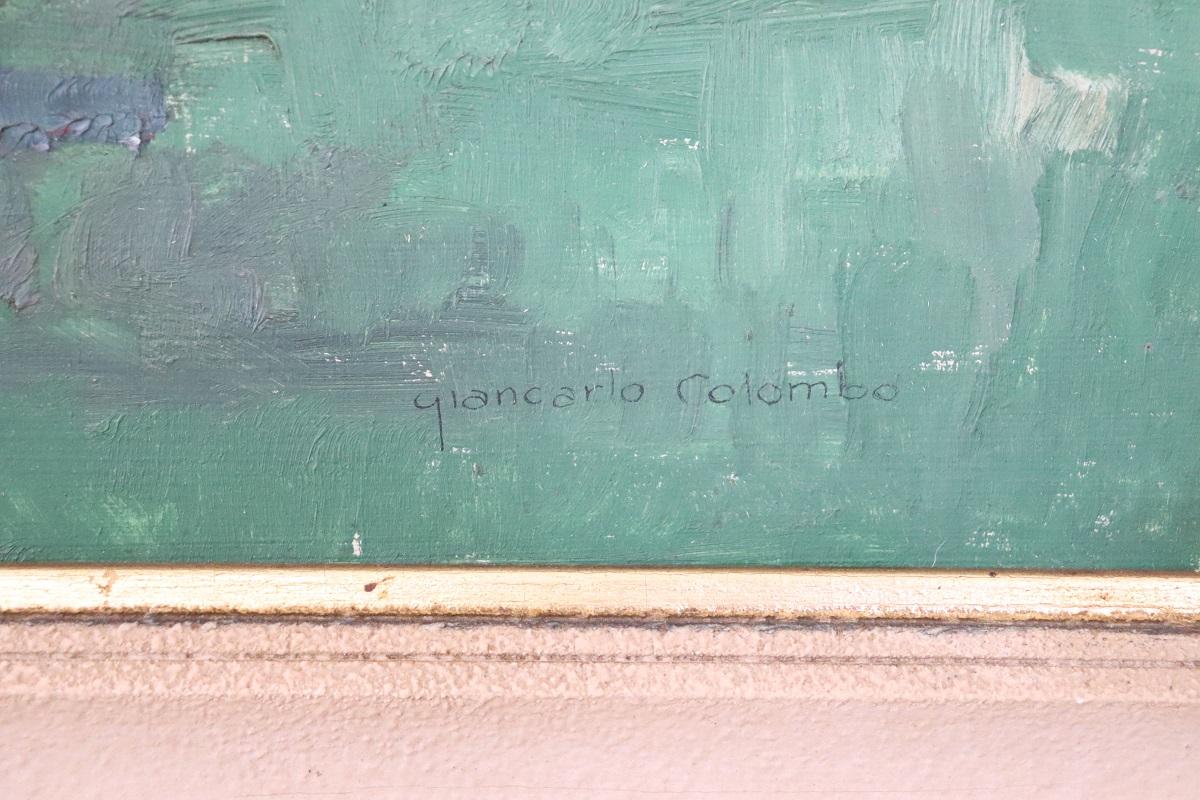 giancarlo Colombo